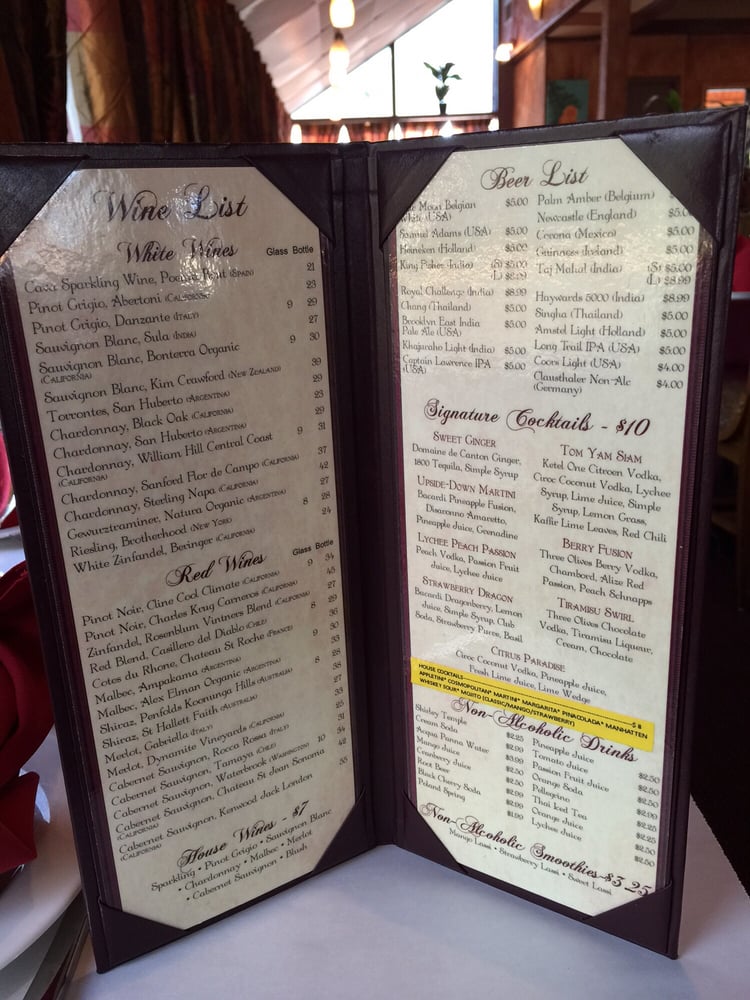 Wine List
White Wines
Glass Bottle
Casa Sparkling Wine, (SPAIN) 21
Pinot Grigio, Abertoni (CALIFORNIA) 23
Pinot Grigio, Danzante (ITALY) 9 29
Sauvignon Blanc, Sula (INDIA) 27
Sauvignon Blanc, Bonterra Organic 9 30
(CALIFORNIA)
Sauvignon Blanc, Kim Crawford (NEW ZEALAND) 39
Torrontes, San Huberto (ARGENTINA) 29
Chardonnay, Black Oak (CALIFORNIA) 23
Chardonnay, San Huberto (ARGENTINA) 29
Chardonnay, William Hill Central Coast 9 31
(CALIFORNIA)
Chardonnay, Sanford Flor de Campo (CALIFORNIA) 37
Chardonnay, Sterling Napa (CALIFORNIA) 42
Gewurztraminer, Natura Organic (ARGENTINA) 27
Riesling, Brotherhood (NEW YORK) 8 28
White Zinfandel, Beringer (CALIFORNIA) 24
Red Wines
Glass Bottle
Pinot Noir, Cline Cool Climate (CALIFORNIA) 9 34
Pinot Noir, Charles Krug Carneros (CALIFORNIA) 45
Zinfandel, Rosenblum Vintners Blend (CALIFORNIA) 27
Red Blend, Casillero del Diablo (CHILE) 8 29
Cotes du Rhone, Chateau St Roche (FRANCE) 36
Malbec, Ampakama (ARGENTINA) 9 30
Malbec, Alex Elman Organic (ARGENTINA) 33
Shiraz, Penfolds Koonunga Hills (AUSTRALIA) 8 28
Shiraz, St Hallett Faith (AUSTRALIA) 38
Merlot, Gabriella (ITALY)
Merlot, Dynamite Vineyards (CALIFORNIA)
Cabernet Sauvignon, Rocca Rossa (ITALY)
Cabernet Sauvignon, Tamaya (CHILE)
Cabernet Sauvignon, Waterbrook (WASHINGTON) 10 34
Cabernet Sauvignon, Chateau St Jean Sonoma 42
(CALIFORNIA)
Cabernet Sauvignon, Kenwood Jack London 55
(CALIFORNIA)
House Wines - $7
Sparkling • Pinot Grigio • Sauvignon Blanc
• Chardonnay • Malbec • Merlot
• Cabernet Sauvignon • Blush
Beer List
Moon Belgian $5.00
White (USA)
Samuel Adams (USA) $5.00
Heineken (Holland) $5.00
King Fisher (India) (S) $5.00
(L) $8.99
Royal Challenge (India) $8.99
Chang (Thailand) $5.00
Brooklyn East India $5.00
Pale Ale (USA)
Khajuraho Light (India) $5.00
Captain Lawrence IPA $5.00
(USA)
Palm Amber (Belgium)
Newcastle (England) $5.00
Corona (Mexico) $5.00
Guinness (Ireland) $5.00
Taj Mahal (India) (S) $5.00
(L) $8.99
Haywards 5000 (India) $8.99
Singha (Thailand) $5.00
Amstel Light (Holland) $5.00
Long Trail IPA (USA) $5.00
Coors Light (USA) $4.00
Clausthaler Non-Alc $4.00
(Germany)
Signature Cocktails - $10
SWEET GINGER
Domaine de Canton Ginger,
1800 Tequila, Simple Syrup
UPSIDE-DOWN MARTINI
Bacardi Pineapple Fusion,
Disaronno Amaretto,
Pineapple Juice, Grenadine
LYCHEE PEACH PASSION
Peach Vodka, Passion Fruit
Juice, Lychee Juice
STRAWBERRY DRAGON
Bacardi Dragonberry, Lemon
Juice, Simple Syrup, Club
Soda, Strawberry Puree, Basil
TOM YAM SIAM
Ketel One Citroen Vodka,
Ciroc Coconut Vodka, Lychee
Syrup, Lime Juice, Simple
Syrup, Lemon Grass,
Kaffir Lime Leaves, Red Chili
BERRY FUSION
Three Olives Berry Vodka,
Chambord, Alize Red
Passion, Peach Schnapps
TIRAMISU SWIRL
Three Olives Chocolate
Vodka, Tiramisu Liqueur,
Cream, Chocolate
CITRUS PARADISE
Ciroc Coconut Vodka, Pineapple Juice,
Fresh Lime Juice, Lime Wedge
HOUSE COCKTAILS $ 8
APPLETINI* COSMOPOLITAN* MARTINI* MARGARITA* PINACOLADA* MANHATTEN
WHISKEY SOUR* MOJITO (CLASSIC/MANGO/STRAWBERRY)
Non-Alcoholic Drinks
Shirley Temple $2.95
Cream Soda $2.99
Acqua Panna Water $3.99
Mango Juice $2.50
Cranberry Juice $2.50
Root Beer $2.99
Black Cherry Soda $2.99
Poland Spring $1.99
Pineapple Juice $2.50
Tomato Juice $2.50
Passion Fruit Juice $2.50
Orange Soda $2.25
Pellegrino
Thai Iced Tea
Orange Juice $2.50
Lychee Juice $2.50
Non-Alcoholic Smoothies-$3.25
Mango Lassi • Strawberry Lassi • Sweet Lassi